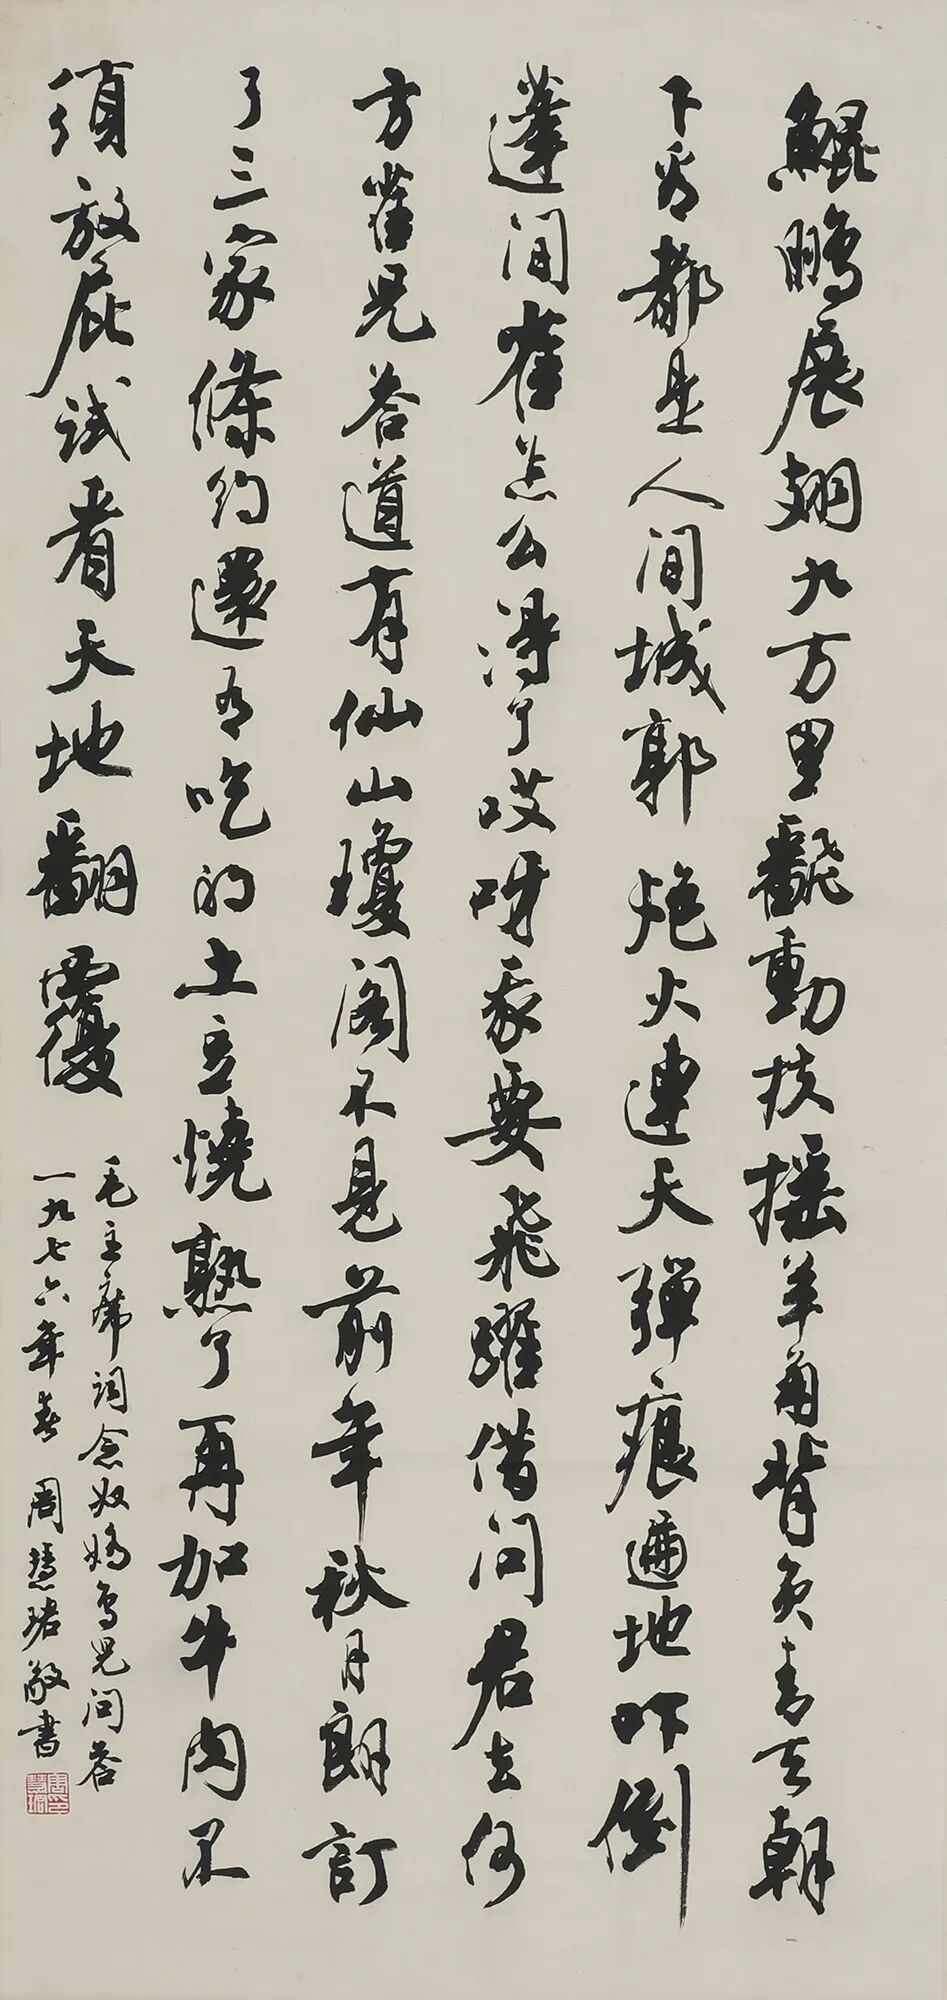 鯤鵬展翅九万里翻動扶摇羊角背負青天朝
下看都是人间城郭炮火連天弹痕遍地吓倒
蓬间雀怎么得了哎呀我要飛躍借问君去何
方雀兒答道有仙山瓊阁不見前年秋月朗訂
了三家條约還有吃的土豆燒熟了再加牛肉不
須放屁試看天地翻覆
毛主席词念奴嬌鸟兒问答
一九七六年春 周慧珺敬書
周慧珺印